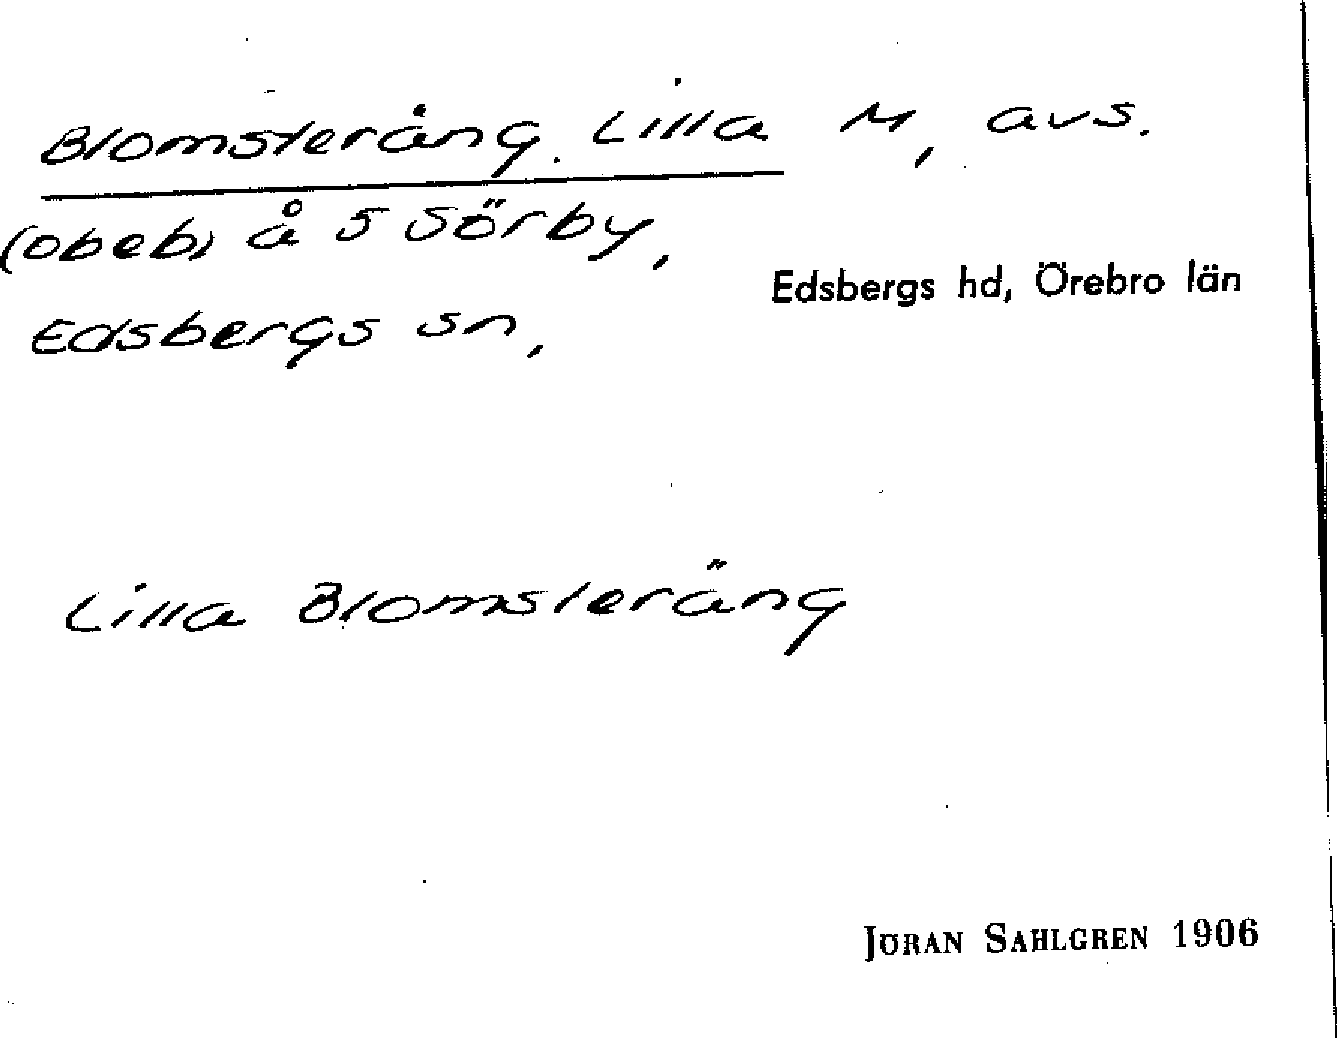 Blomsteräng, Lilla M, avs.
(obeb) å 5 Sörby,
Edsbergs hd, Örebro län
Edsbergs sn,
Lilla Blomsteräng
JÖRAN SAHLGREN 1906